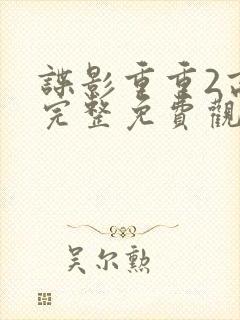 諜影重重2高
完整免費觀
吴尔勲